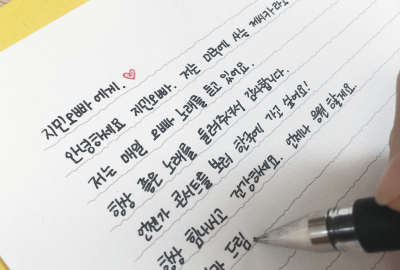 지민오빠 에게.
안녕하세요 지민오빠. 저는 에 사는 제시카라고
저는 매일 오빠 노래를 듣고 있어요.
항상 좋은 노래를 들려주셔서 감사합니다.
언젠가 콘서트를 보러 한국에 가고 싶어요!
항상 힘내시고 건강하세요. 언제나 응원 할게요.
드림